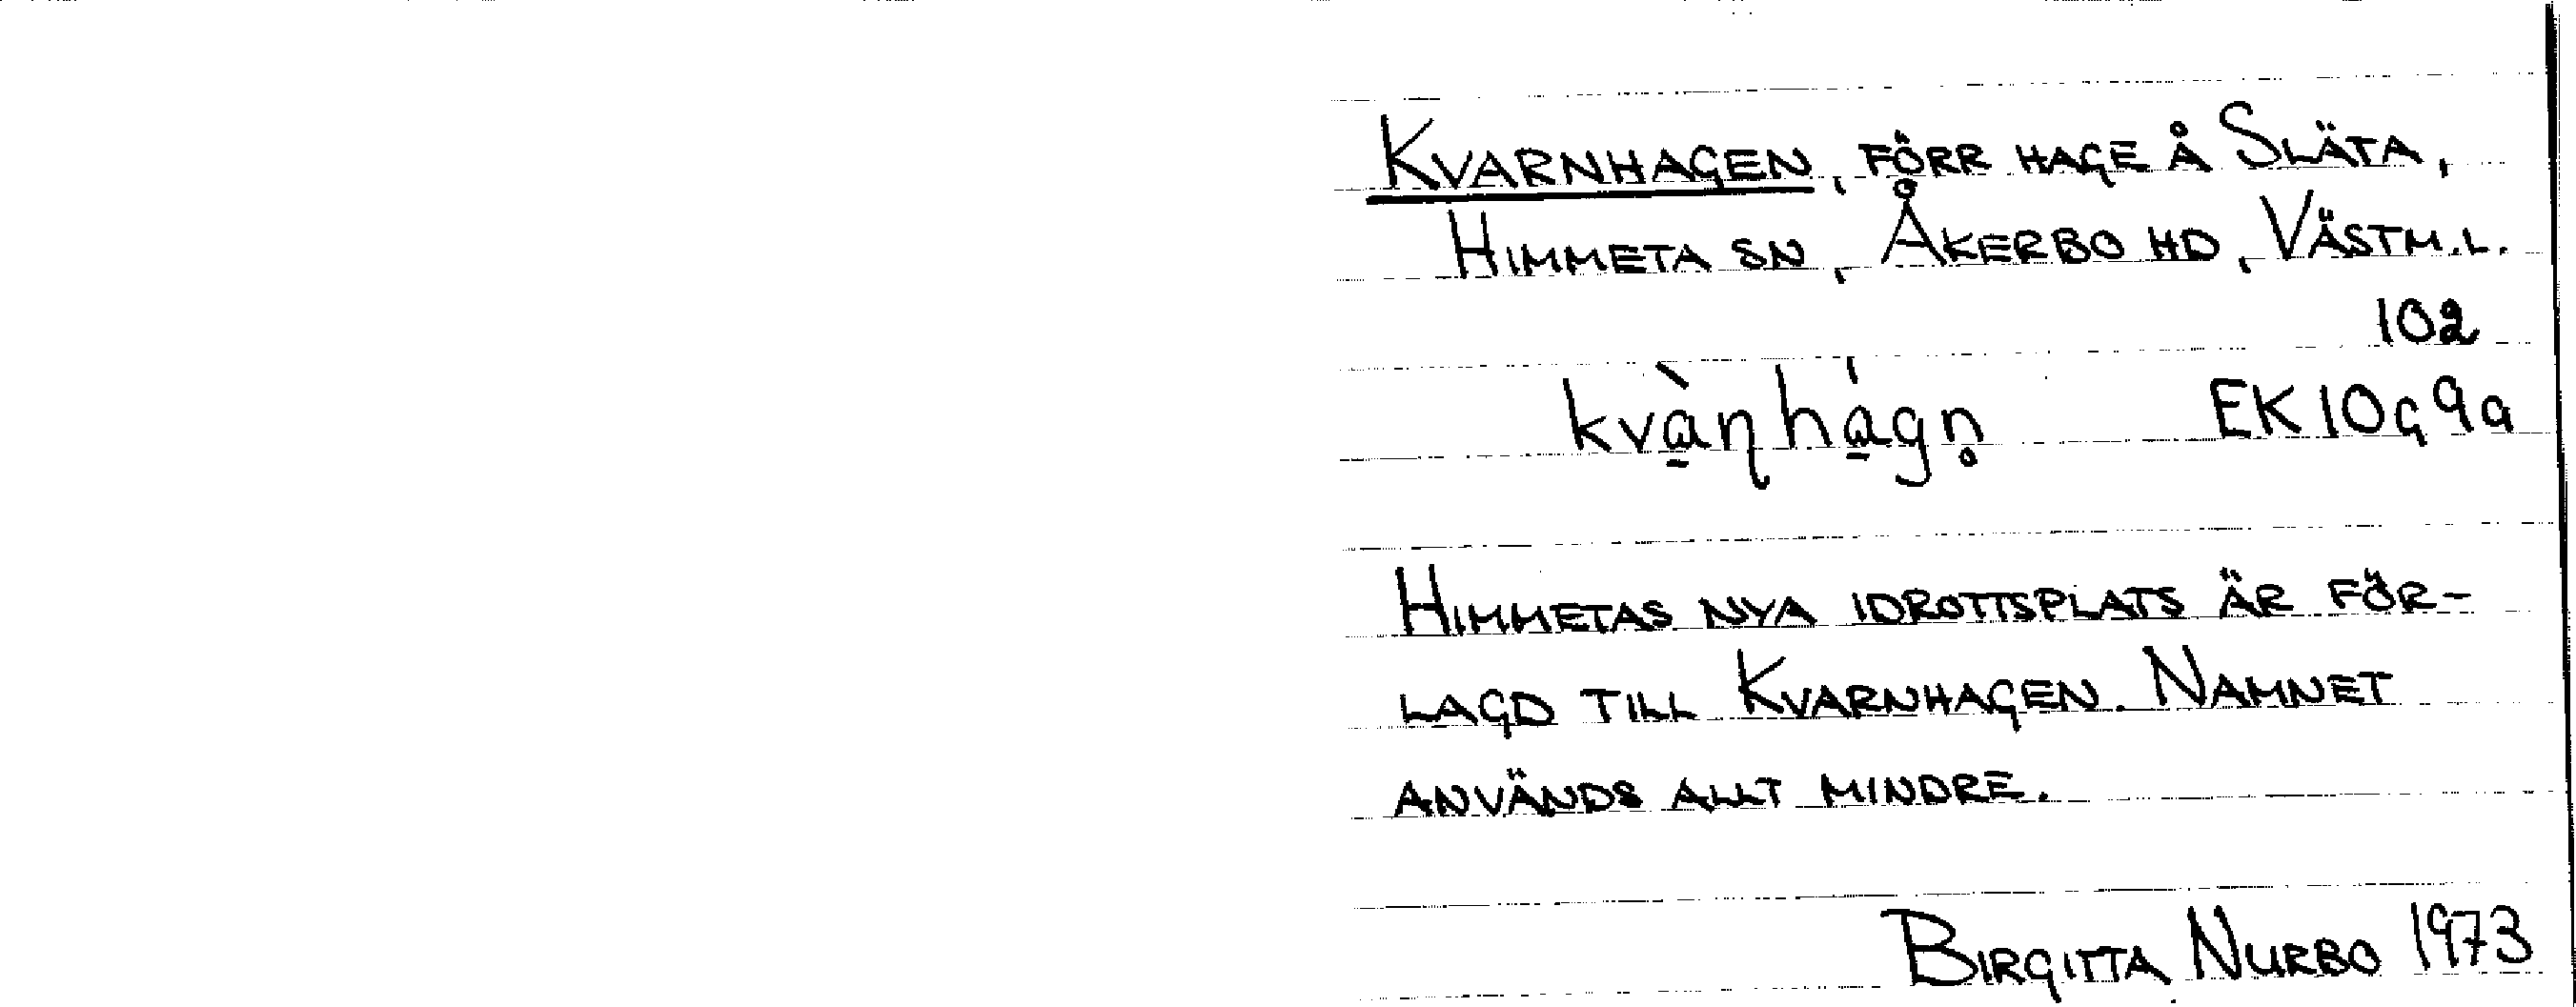 KVARNHAGEN, FÖRR HAGE Å SLÄTA,
HIMMETA SN, ÅKERBO HD, VÄSTM.L.
102
kvà̱ɳhá̱gn̥ EK 10G 9a
HIMMETAS NYA IDROTTSPLATS ÄR FÖR-
LAGD TILL KVARNHAGEN. NAMNET
ANVÄNDS ALLT MINDRE.
BIRGITTA NURBO 1973